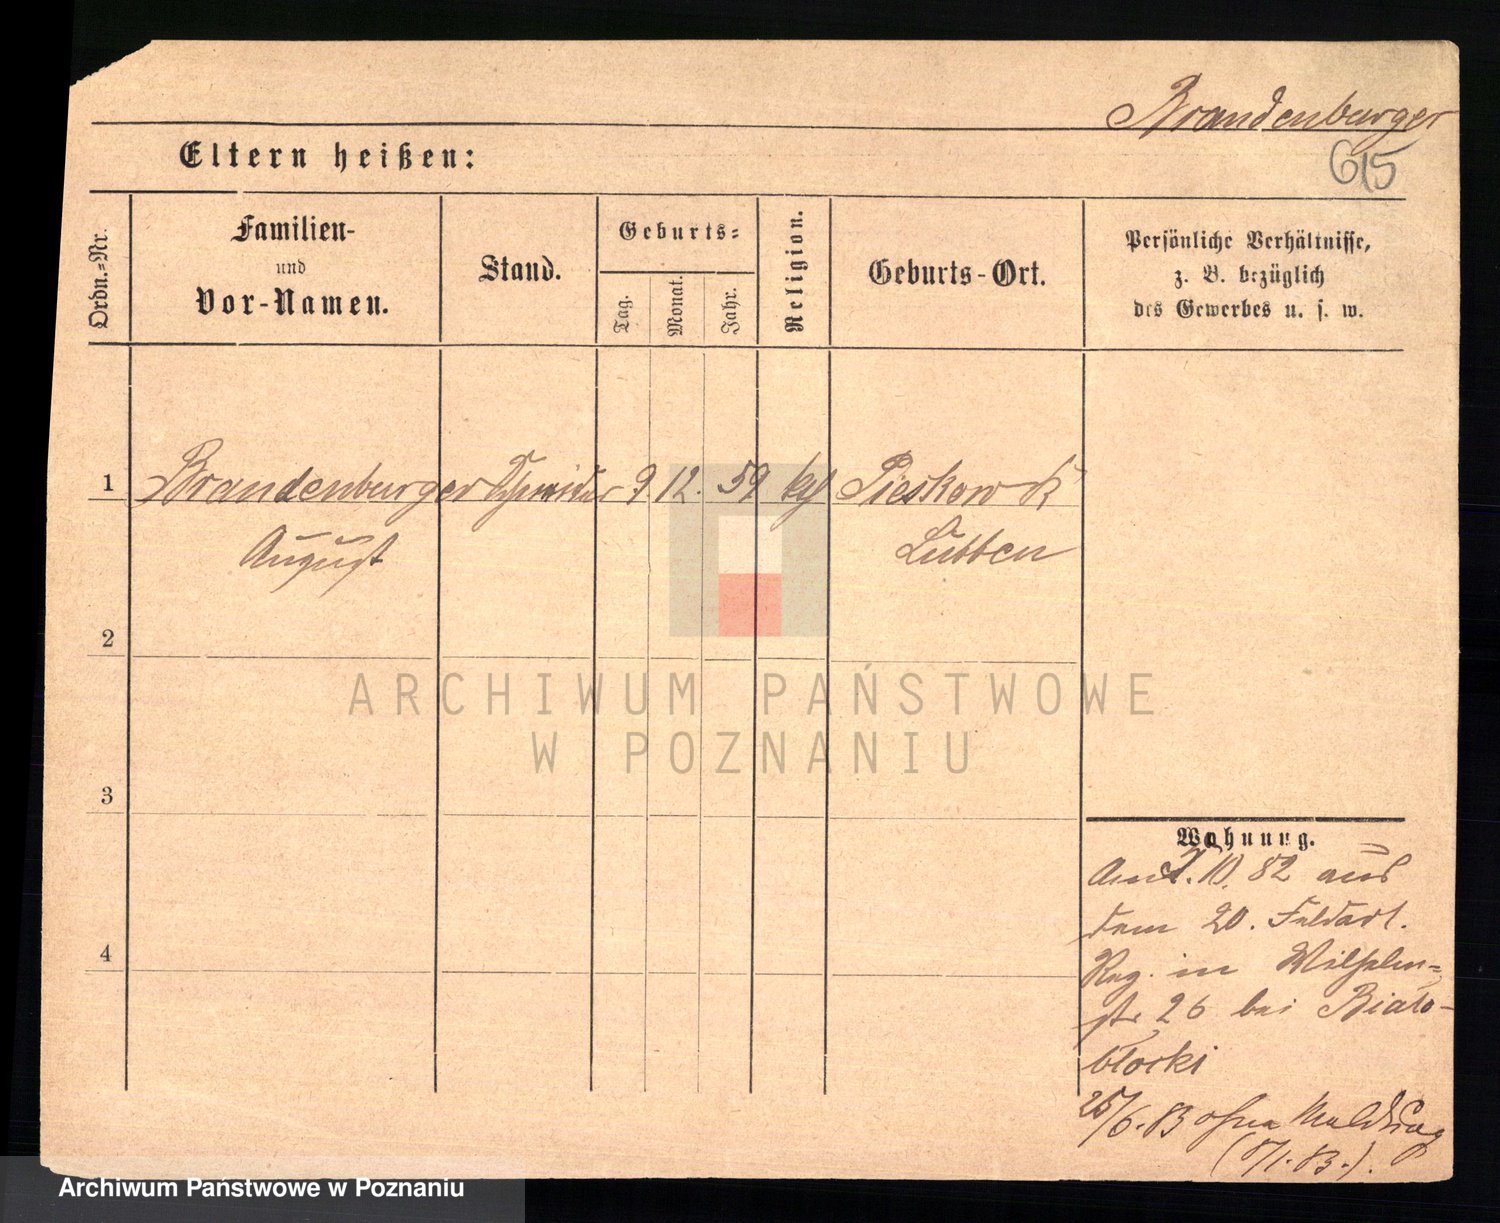 Brandenburger
615
Eltern heißen:
Ordn.-Nr.
Familien-
und
Vor-Namen.
Stand.
Geburts-
Tag.
Monat.
Jahr.
Religion.
Geburts-Ort.
Persönliche Verhältnisse,
z. B. bezüglich
des Gewerbes u. s. w.
1 Brandenburger Schneider 9 12. 59 Pieskow K
August Lübben
2
3
4
Wohnung.
Am 1. 10. 82 aus
dem 20. Feldart.
Reg. in Wilhelm-
str 26 bei Biało-
błocki
25/6. 83 ohne Meldung
ARCHIWUM PAŃSTWOWE
W POZNANIU
Archiwum Państwowe w Poznaniu